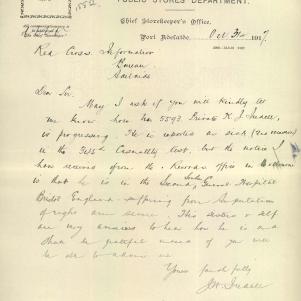 PUBLIC STORES DEPARTMENT.
Chief Storekeeper's Office,
Port Adelaide, Oct 31st 1917
Red Cross Information
Bureau
Adelaide
Dear Sir
May I ask if you will kindly let
me know how No 5593 Private K. J.
is progressing. He is reported as sick
in the Casualty list, but the notice I
have received from the office in Melbourne
is that he is in the Second General Hospital
Bristol England suffering from Amputation
of right arm severe. His sisters & self
are very anxious to hear how he is and
shall be grateful indeed if you will
be able to advise us
Yours faithfully